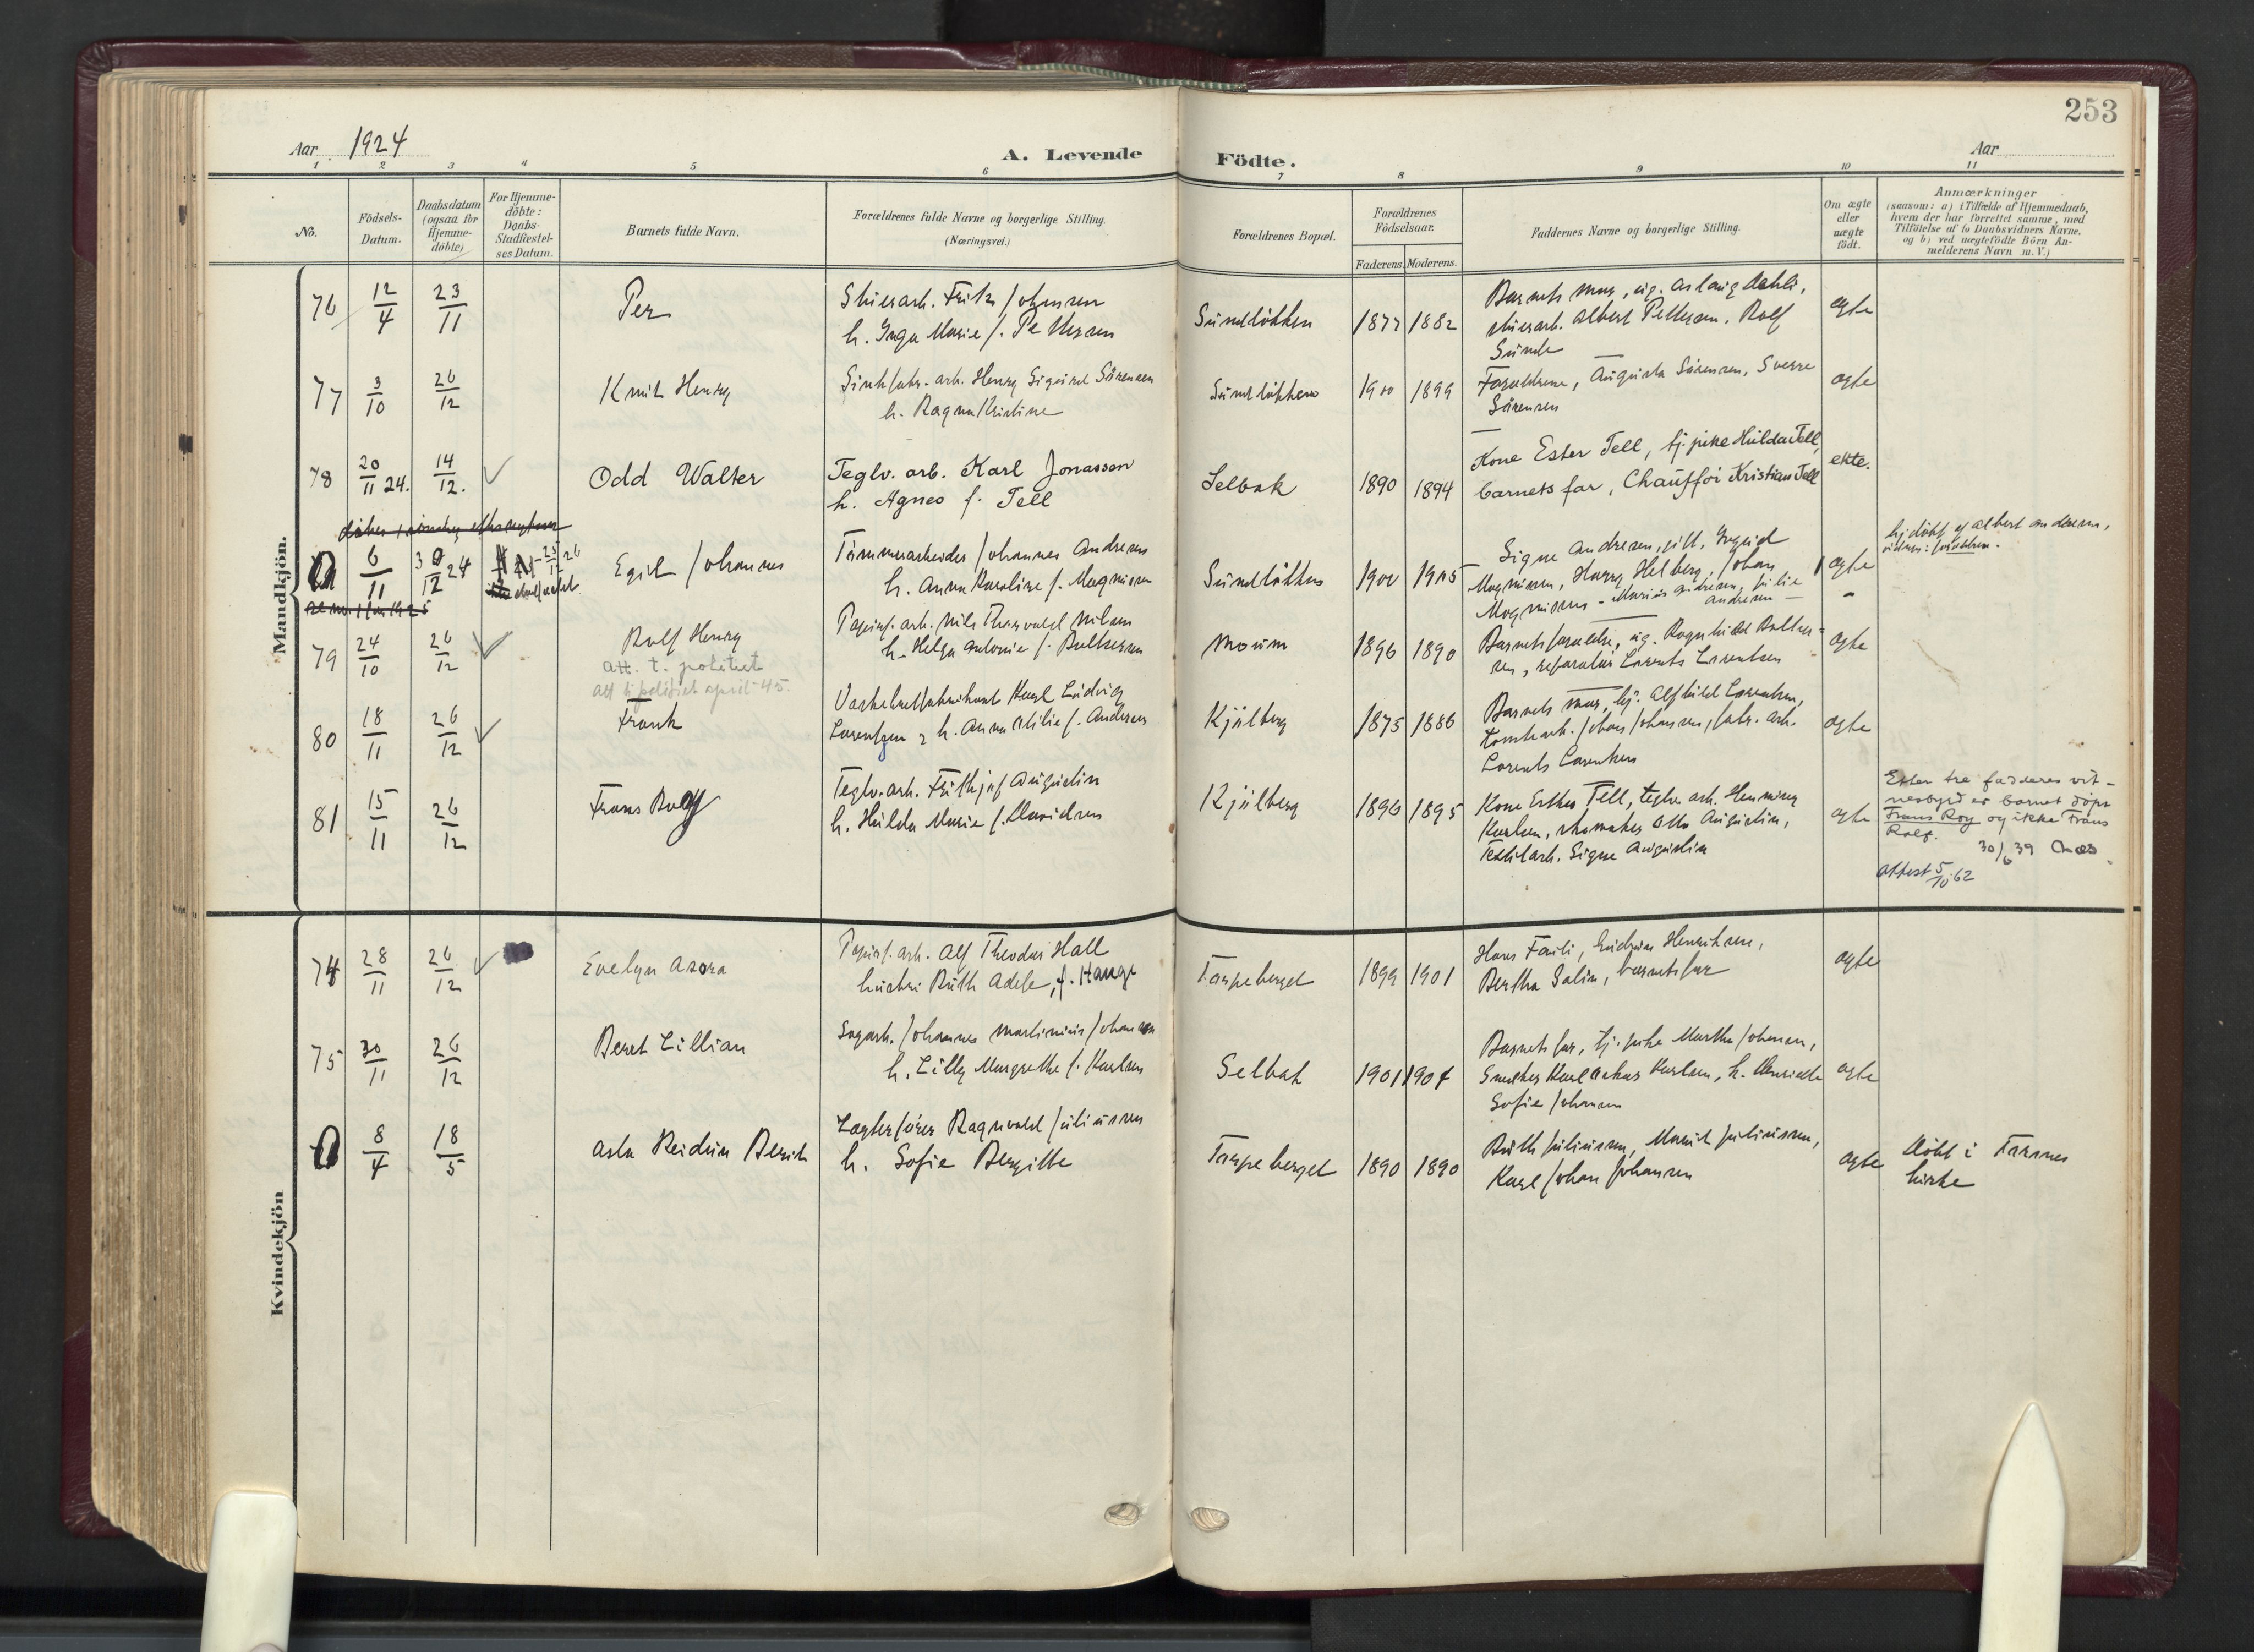 253
Aar 1924
A. Levende
Födte.
Aar
1 2 3 4 5 6 7 8 9 10 11
No.
Födsels-
Datum.
Daabsdatum
(ogsaa for
Hjemme-
döbte)
For Hjemme-
döbte:
Daabs-
Stadfæstel-
ses Datum.
Barnets fulde Navn.
Forældrenes fulde Navne og borgerlige Stilling.
(Næringsvei.)
Forældrenes Bopæl.
Forældrenes
Födselsaar.
Faderens. Moderens.
Faddernes Navne og borgerlige Stilling.
Om ægte
eller
uægte
födt.
Anmærkninger
(saasom: a) i Tilfælde af Hjemmedaab,
hvem der har forrettet samme, med
Tilföielse af to Daabsvidners Navne.
og b) ved uægtefödte Börn An-
melderens Navn m. V.)
Mandkjön.
76 12/4 23/11 Per
Fritz Johansen
h. Inga Marie f. Pettersen
Sundløkken 1877 1882
Barnets mor, Aslaug Dahli,
Albert Pettersen, Rolf
Sunde
ægte
77 3/10 26/12 Knut Henry
Sinkfabr. arb. Henry Sigurd Sörensen
h. Ragna Kristine
Sundløkken 1900 1899
Forældrene, Augusta Sörensen, Sverre
Sörensen
ægte
78 20/11 24. 14/12. Odd Walter
Teglv. arb. Karl Jonassen
h. Agnes f. Tell
Selbak 1890 1894
Kone Ester Tell, tj. pike Hulda Tell,
barnets far, Chauffør Kristian Tell
ekte.
0 6/11 30/12 24 Egil Johannes
Tömmerarbeider Johannes Andresen
h. Anna Karoline f. Magnussen
Sundløkken 1900 1905
Signe Andresen, Ingrid
Magnussen, Harry Helberg, Johan
Magnussen - Marius Andresen, Julie
Andresen -
ægte
hj. døbt af Albert Andersen,
vidner: forældrene.
79 24/10 26/12 Rolf Henry
Att. t. politiet
att til politiet april 45.
Papirf. arb. Nils Thorvald Nilsen
h. Helga Antonie f. Baltzersen
Moum 1896 1890
Barnets forældre, Ragnhild Baltzer-
sen, reparatør Lorents Lorentzen
ægte
80 18/11 26/12 Frank
Karl Ludvig
Lorentzen & h. Anna Otilie f. Andersen
Kjölberg 1875 1886
Barnets mor, Alfhild Lorentzen,
Johan Johansen, fabr. arb.
Lorents Lorentzen
ægte
81 15/11 26/12 Frans Roy
Teglv. arb. Frithjof Augustin
h. Hulda Marie f. Davidsen
Kjölberg 1896 1895
Kone Esther Tell, teglv. arb. Henning
Karlsen, skomaker Otto Augustin,
Textilarb. Signe Augustin
ægte
Efter tre fadderes vit-
nesbyrd er barnet döpt
Frans Roy og ikke Frans
Rolf.
30/6 39
attest 5/10 62
Kvindekjön
74 28/11 26/12 Evelyn Asora
Papirf. arb. Alf Theodor Hall
hustru Ruth Adele, f. Hauge
Torpeberget 1899 1901
Hans Fauli, Gudrun Henriksen,
Bertha Salin, barnets far
ægte
75 30/11 26/12 Beret Lillian
Sagarb. Johannes Martinius Johansen
h. Lilly Margrethe f. Karlsen
Selbak 1901 1904
Barnets far, tj. pike Martha Johansen,
Snedker Karl Oskar Karlsen, h. Henriette
Sofie Johansen
ægte
0 8/4 18/5 Asta Reidun Berit
Ragnvald Juliussen
h. Sofie Bergitte
Torpeberget 1890 1890
Ruth Juliussen, Marit Juliussen,
Karl Johan Johansen
ægte
Döbt i Torsnes
kirke